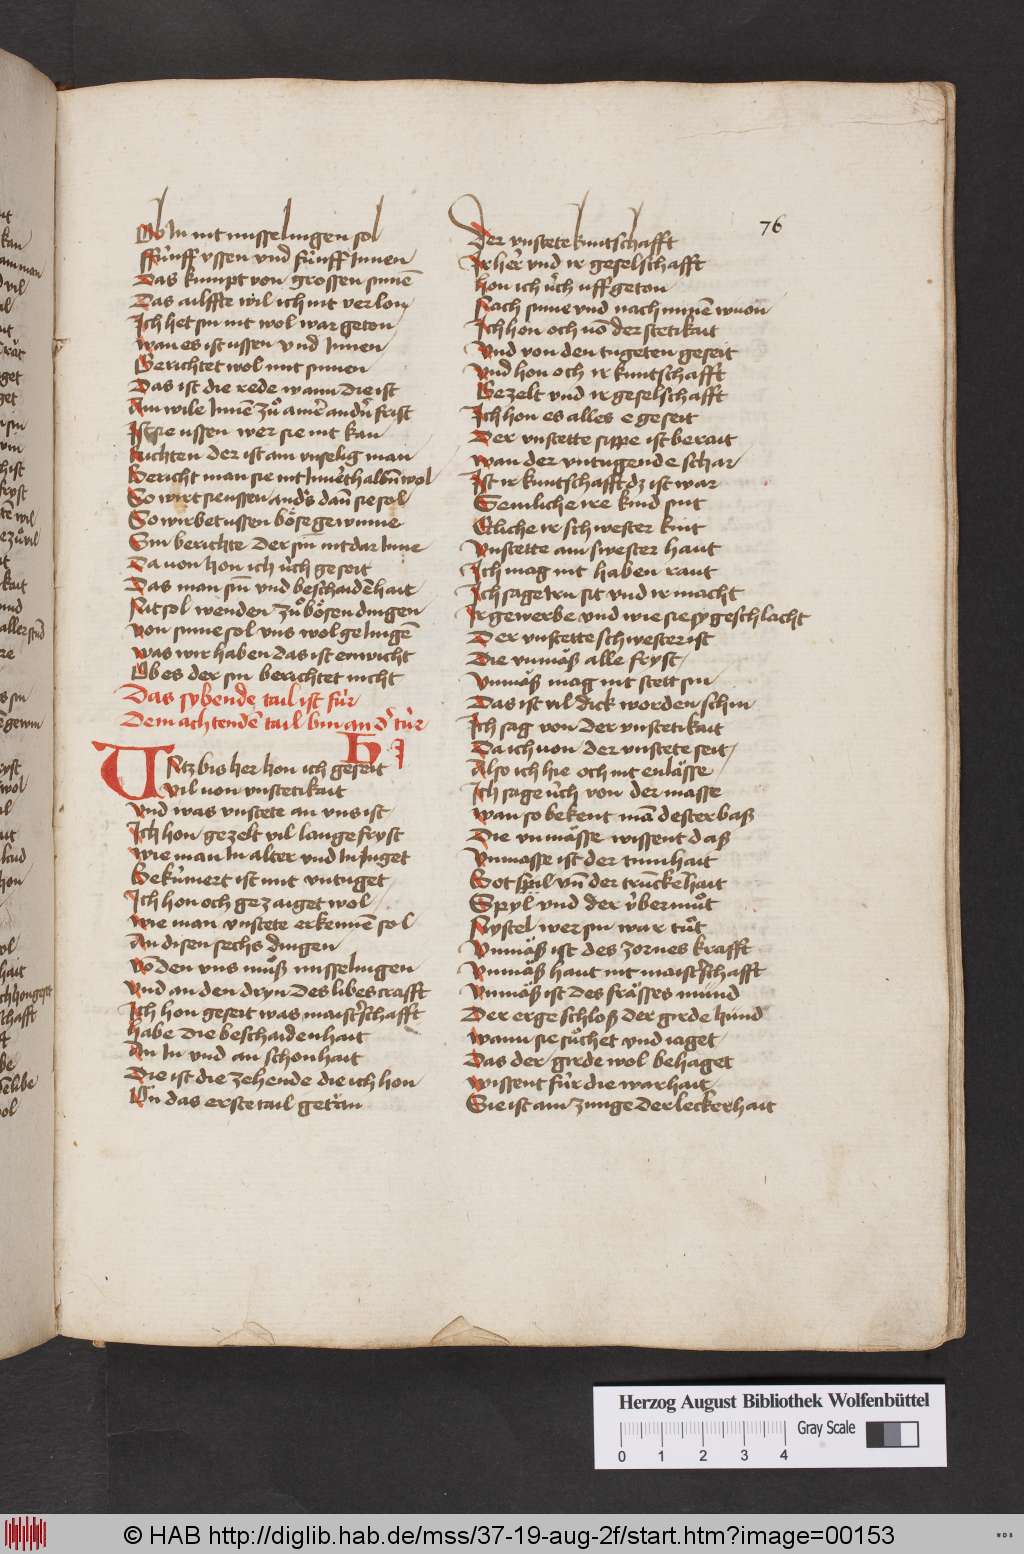 76
Ob In nit misselingen sol
ffu̇nff vssen vnd fu̇nff Innen
Das kumpt von grossen sinnē
Das ailffte wil ich nit verlon
Ich het sin nit wol war geton
wan es ist ussen vnd Innen
Berichtet wol mit sinnen
Das ist die rede wann die ist
Ain wile Innē zů aīner andn̄ frist
Ist sie ussen wer sie nit kan
Richten der ist ain vnselig man
Bericht man sie nit Innerthalbn̄ wol
So wirt sie ussen anders dan̄ sie sol
So wir betussen böse gewinne
Sin berichte der sin nit dar Inne
Da uon hon ich u̇ch geseit
Das man sin̄ vnd beschaidēhait
Nit sol wenden zů bösen dingen
von sinne sol vns wol gelingē
was wir haben das ist enwicht
Ob es der sin berichtet nicht
Das sybende tail ist fu̇r
Dem achtendē tail bin an d' tu̇r
UNtz bis her hon ich geseit
vil uon vnstetikait
vnd was vnstete an vns ist
Ich hon gezelt vil lange fryst
wie man In alter vnd In Juget
Beku̇mert ist mit vntuget
Ich hon och gezaiget wol
wie man vnstete erkennē sol
An disen sechs dingen
vō den vns můß misselingen
vnd an den dryn des libes crafft
Ich hon geseit was maist'schafft
habe die beschaidenhait
An In vnd an schonhait
Die ist die zehende die ich hon
An das erste tail getan
Der vnstete kuntschafft
Ir her vnd ir geselschafft
hon ich u̇ch uff geton
Nach sinne vnd nach minē wuon
Ich hon och uō der stetikait
vnd von den tugeten geseit
vnd hon och ir kuntschafft
Gezelt vnd ir geselschafft
Ich hon es alles e geseit
Der vnstette sippe ist berait
wan der vntugende schar
Ist ir kuntschafft dz ist war
Semliche ire kind sint
Etliche ir schwester kint
vnstette ain swester haut
Ich mag nit haben raut
Ich sage Irn sit vnd ir macht
Ir gewerbe vnd wie sie sy geschlacht
Der vnstette schwester ist
Die vnmäß alle fryst
vnmäß mag nit stett sin
Das ist vil dick worden schin
Ich sag von der vnstetikait
Da ich uon der vnstete seit
Also ich hie och nit enlässe
Ich sage u̇ch von der masse
wan so bekent mā dester baß
Die vnmässe wissent daß
vnmasse ist der tumhait
Bot spil vn̄ der trūckēhait
Spyl vnd der u̇bermůt
Nystel wer sin war tůt
vnmäß ist des zornes krafft
vnmäß haut nit maist'schafft
vnmäß ist des frässes mund
Der erge schloß der girde hund
wann sie sůchet vnd iaget
Das der girde wol behaget
wissent fu̇r die warhait
Sie ist ain zunge der leckerhait
Herzog August Bibliothek Wolfenbüttel
Gray Scale
0 1 2 3 4
© HAB http://diglib.hab.de/mss/37-19-aug-2f/start.htm?image=00153